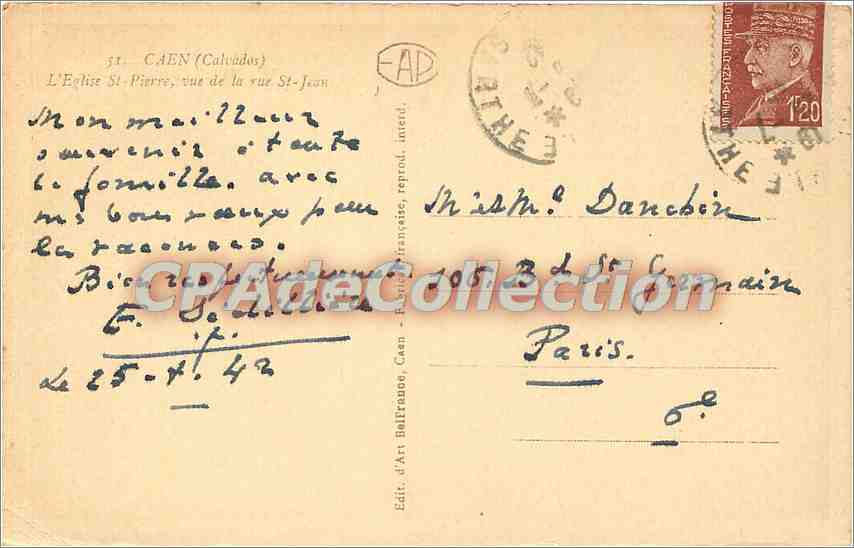 51. CAEN (Calvados)
L'Eglise St-Pierre, vue de la rue St-Jean
AP
Mon meilleur
souvenir à toute
la famille. avec
mes bons vœux pour
les vacances.
Bien respectueusement
E.
Le 25-7-42
Edit. d'Art BelFrance, Caen - Fabric. française, reprod. interd.
CPAdeCollection
POSTES FRANÇAISES
1F20
SARTHE
THE
M et Me Danchin
105. Bd St Germain
Paris.
6e